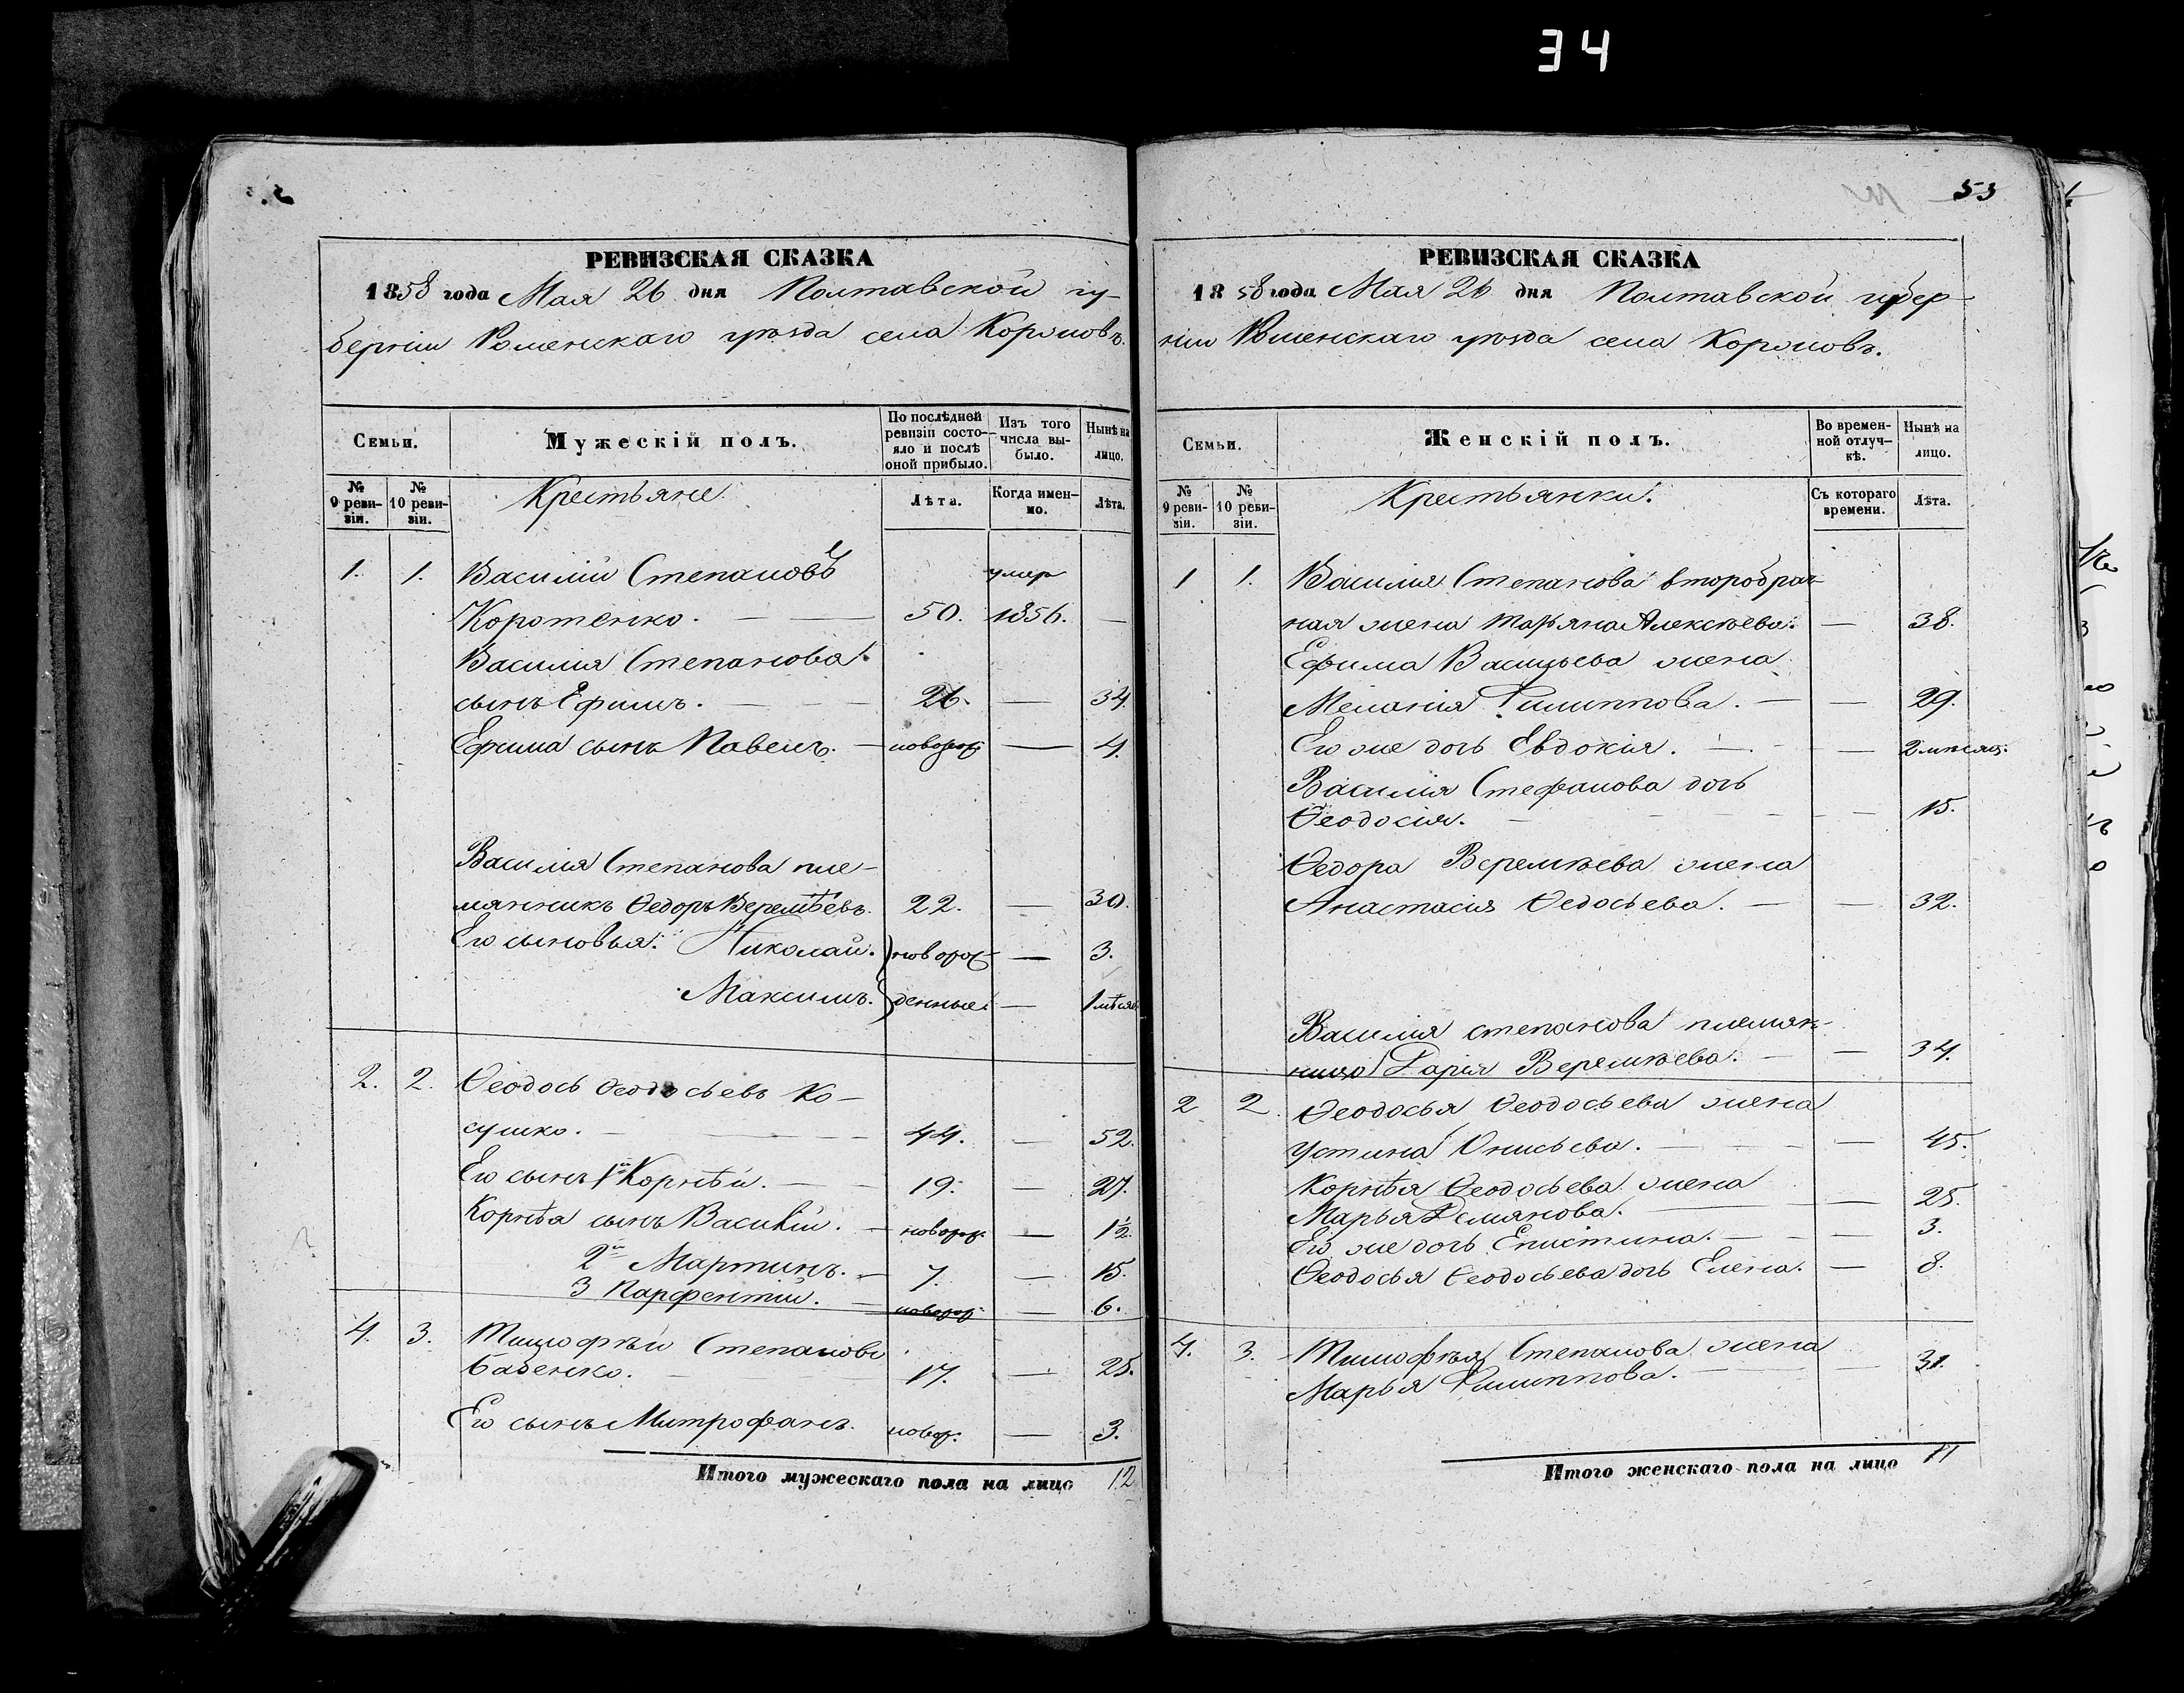 34
53
РЕВИЗСКАЯ СКАЗКА
1858 года Мая 26 дня Полтавской гу-
берніи Роменскаго уѣзда села Коровиовъ.
Семьи.
Мужескій полъ.
По послѣдней ревизіи состо-яло и послѣ оной прибыло.
Изъ того числа вы-было.
Нынѣ на лицо.
№ 9 реви-зіи.
№ 10 реви-зіи.
Крестьяне.
Лѣта.
Когда имен-но.
Лѣта.
1. 1. Василій Степановъ умер
Коротенко. — 50. 1856. —
Василія Степанова
сынъ Ефимъ. — 26. — 34.
Ефима сынъ Павелъ. — новорож — 4.
Василія Степанова пле-
мянникъ Ѳедоръ Веремѣевъ. 22. — 30.
Его сыновья: Николай. новорож — 3.
Максимъ. денные. — 1 мѣсяц.
2. 2. Ѳеодось Ѳеодосьевъ Ко-
сушко. — 44. — 52.
Его сынъ 1й Корнѣй. — 19. — 27.
Корнѣя сынъ Василій. — новорож. — 1½.
2й Мартинъ. — 7. — 15.
3 Парфентій. — новорож — 6.
4. 3. Тимофѣй Степановъ
Бабенко. — 17. — 25.
Его сынъ Митрофанъ. новор. — 3.
Итого мужескаго пола на лицо 12
РЕВИЗСКАЯ СКАЗКА
1858 года Мая 26 дня Полтавской губер-
ніи Роменскаго уѣзда села Коровиовъ.
Семьи.
Женскій полъ.
Во времен-ной отлуч-кѣ.
Нынѣ на лицо.
№ 9 реви-зіи.
№ 10 реви-зіи.
Крестьянки.
Съ котораго времени.
Лѣта.
1 1. Василія Степанова второбрач-
ная жена Марьяна Алексѣева. — 38.
Ефима Васильева жена
Меланія Филиппова. — — 29.
Его же дочь Евдокія. — — 2 мѣсяц.
Василія Стефанова дочь
Ѳеодосія. — — 15.
Ѳедора Веремѣева жена
Анастасія Ѳедосьева. — — 32.
Василія степанова племян-
ница Дарія Веремѣева. — — 34.
2 2. Ѳеодосья Ѳеодосьева жена
Устина Онисьева. — — 45.
Корнѣя Ѳеодосьева жена
Марья Демянова. — — 25.
Его же дочь Епистина. — — 3.
Ѳеодосья Ѳеодосьева дочь Елена. — 8.
4. 3. Тимофѣя Степанова жена
Марья Филиппова. — — 31.
Итого женскаго пола на лицо 11